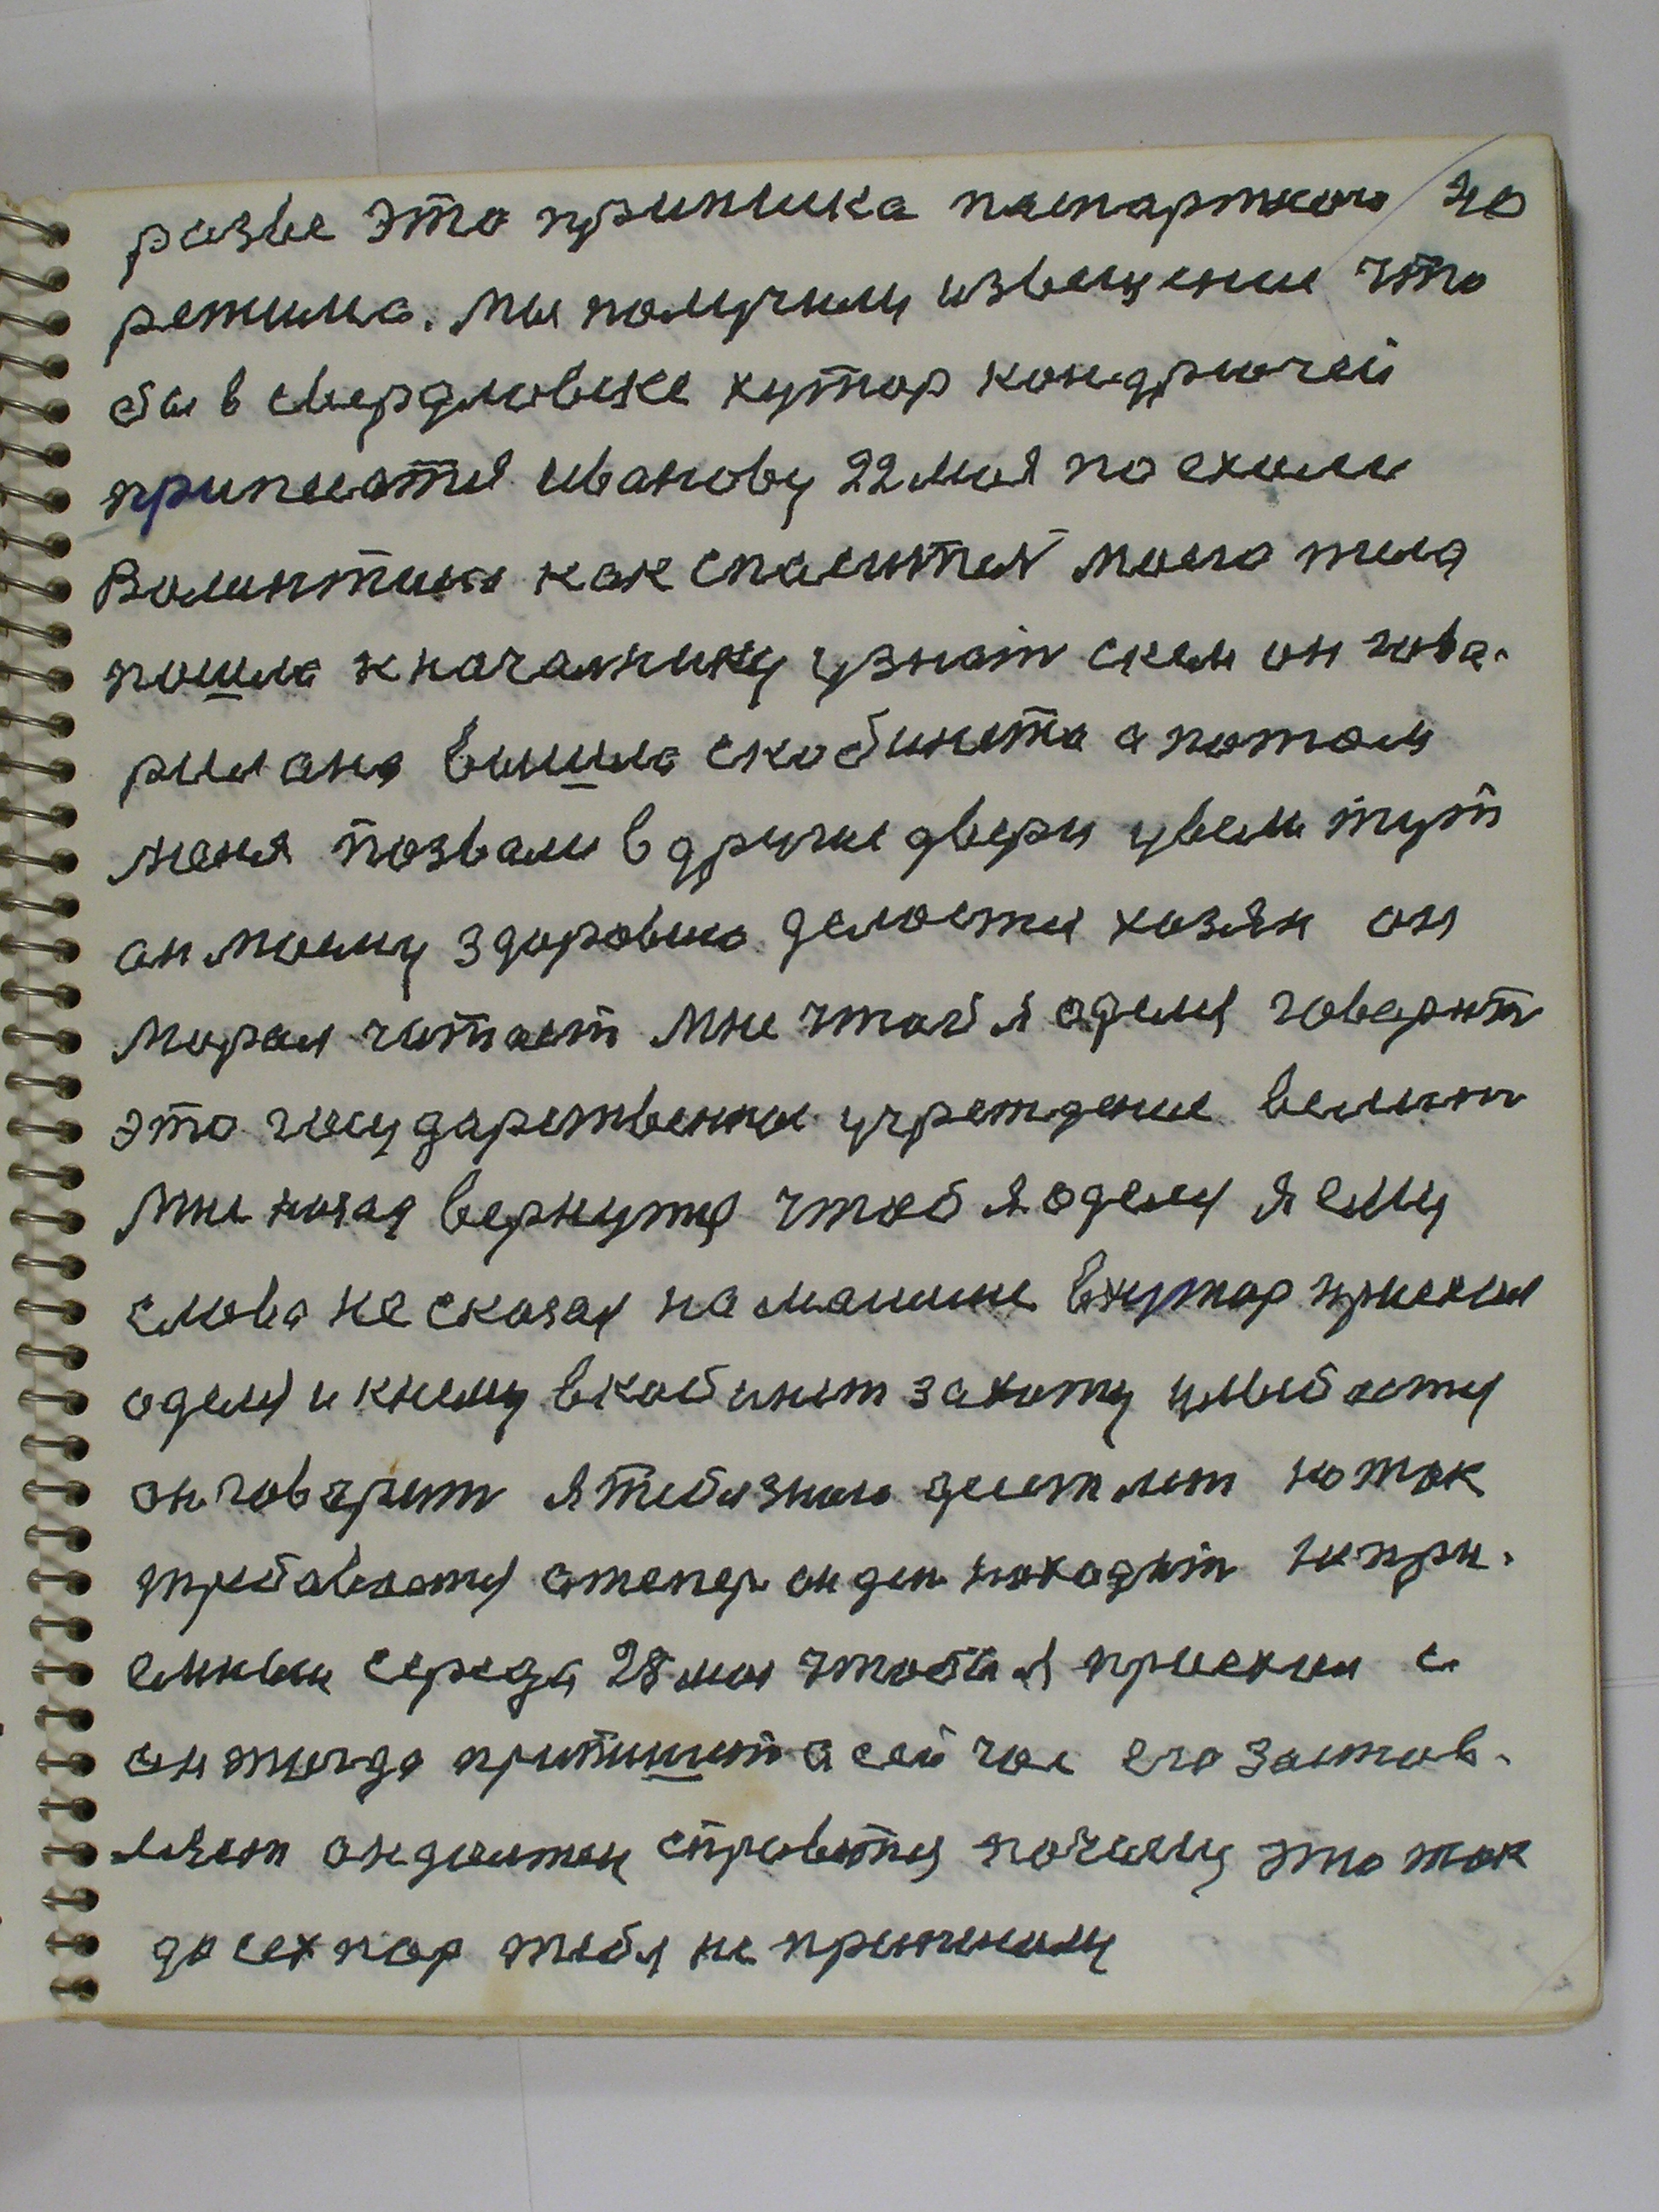 разве это приписка паспартного 20
режима. мы получили извещение что
бы в свердловске хутор кондрючей
приписатся иванову 22 мая поехали
Валинтина как спаситея моего тела
пошла к начальнику узнат скем он гова-
рил она вышла скобинета а потом
меня позвали в другие двери увели тут
он моему здоровию делается хозяин он
мораль читает мне чтоб я оделся говарит
это государственное учреждение велит
мне назад вернутся чтоб я оделся я ему
слова не сказал на машине вхутор приехал
оделся и кнему вкабинет захожу улыбается
он говарит я тебя знаю десет лет но так
требавается атепер он ден находит непри-
емный середа 28 мая чтобы я приехал и
он тогда припишет а сейчас его застав-
ляет он должен справится почему это так
до сех пор тебя не прописали